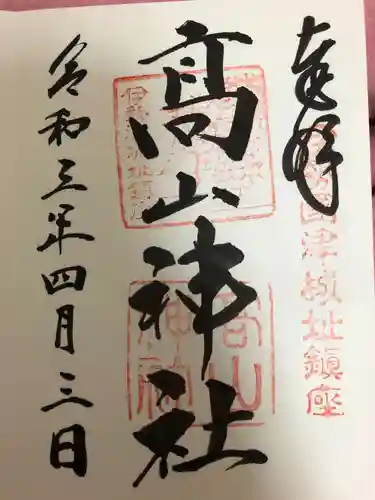 奉拝
国津城址鎮座
髙山神社
高山神社
令和三年四月三日